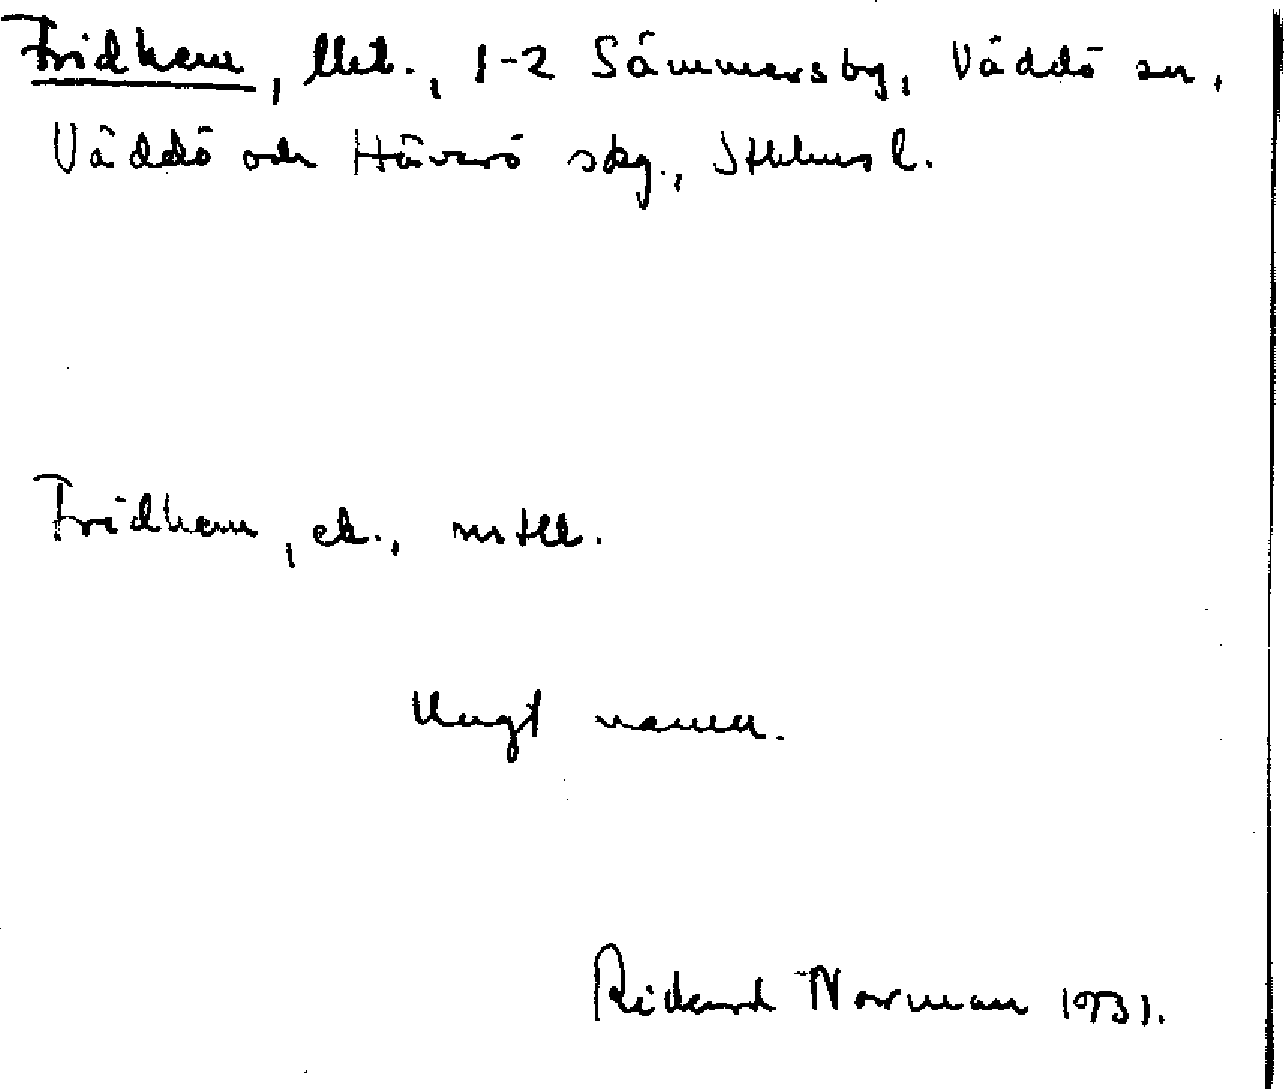 Fridhem, lht., 1-2 Sämmersby, Väddö sn,
Väddö och Häverö skg., Sthlms l.
Fridhem, ek.,
Ungt namn.
Rickard Norman 1931.